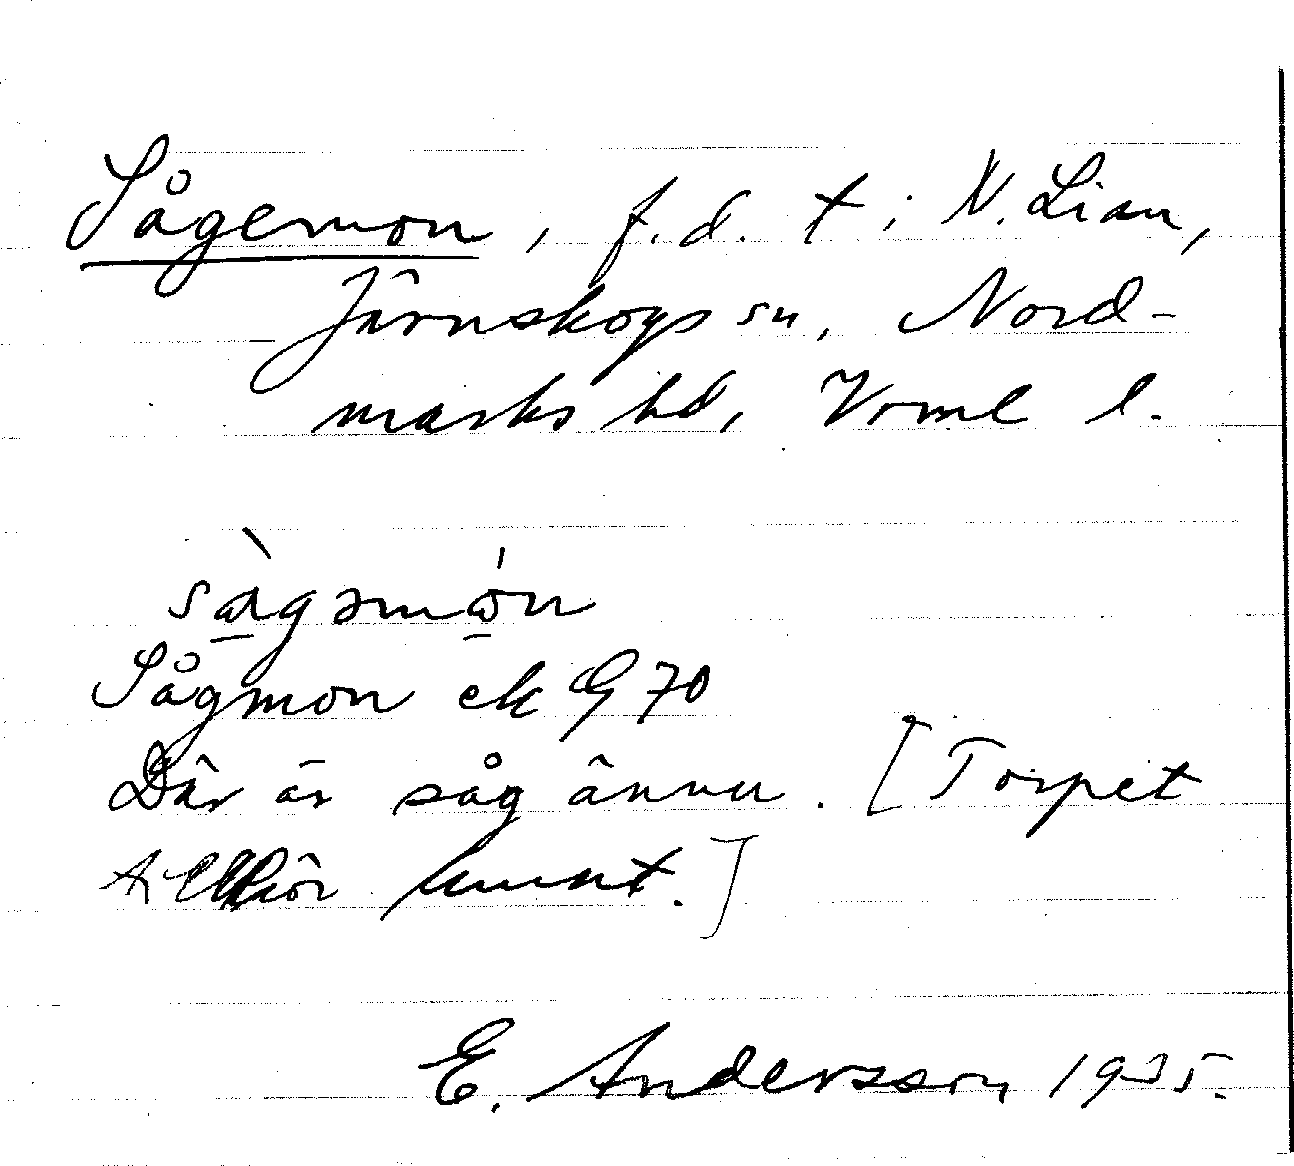 Sågemon, f.d. t i N. Lian,
Järnskogs sn, Nord-
marks hd, Vrml l.
Sågmon ek G 70
Där är såg ännu. [Torpet
E. Andersson 1935.